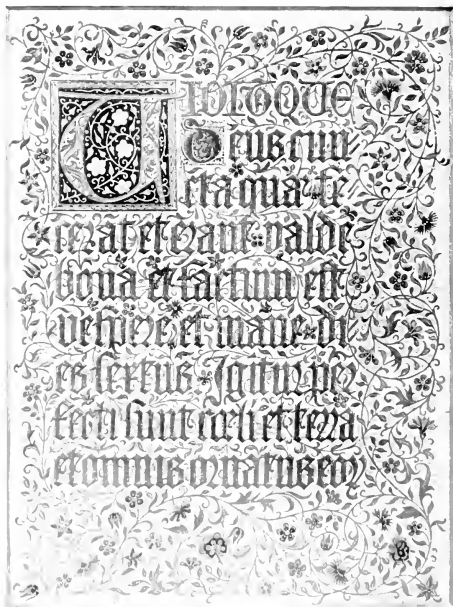 VIDITQUE
Deus cun
cta qua fe
cerat et erant valde
bona et factum est
vespere et mane di
es sextus Igitur per
fecti sunt cœli et terra
et omnis ornatus eor